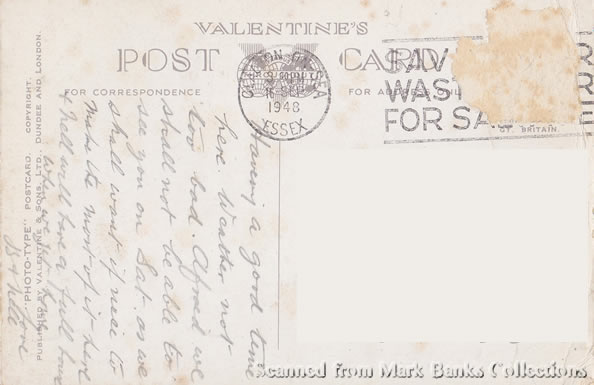 VALENTINE'S
POST CARD
FOR CORRESPONDENCE
FOR ADDRESS ONLY
CLACTON ON SEA
SEP
1948
ESSEX
WAS
FOR SAL
GT. BRITAIN
"PHOTO-TYPE" POSTCARD. COPYRIGHT.
PUBLISHED BY VALENTINE & SONS, LTD., DUNDEE AND LONDON.
Having a good time
here. Weather not
too bad. Alfred we
shall not be able to
see you on Sat. as we
shall want if nice to
make the most of it here
& Nell will have a full house
when we get back
Love
B & Nell
Scanned from Mark Banks Collections